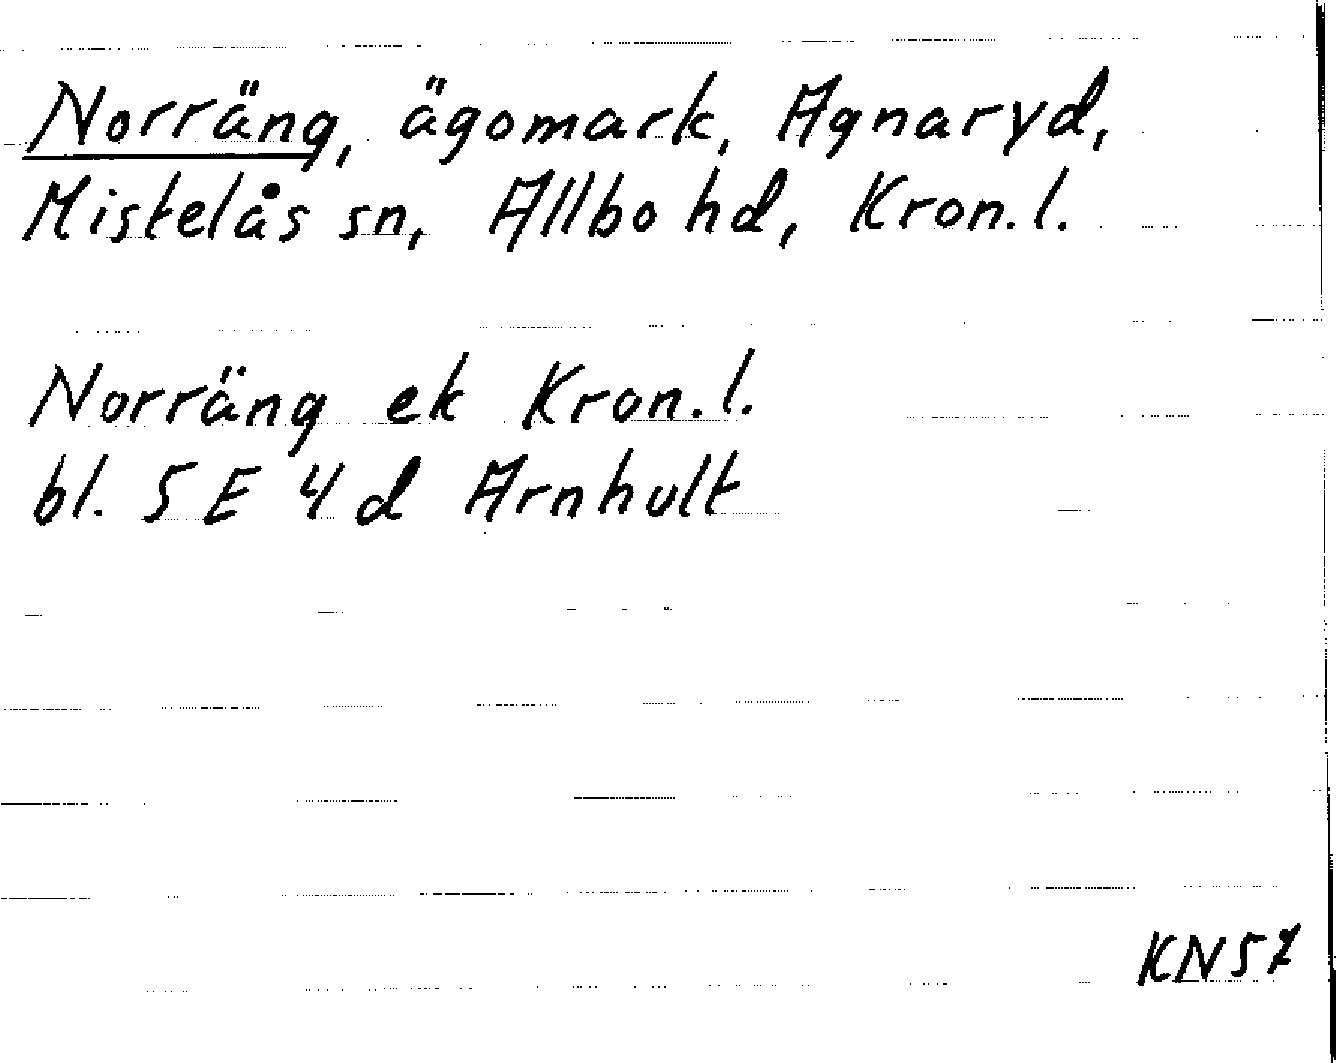 Norräng, ägomark, Agnaryd,
Mistelås sn, Allbo hd, Kron.l.
Norräng ek Kron.l.
bl. 5 E 4 d Arnhult
KN57